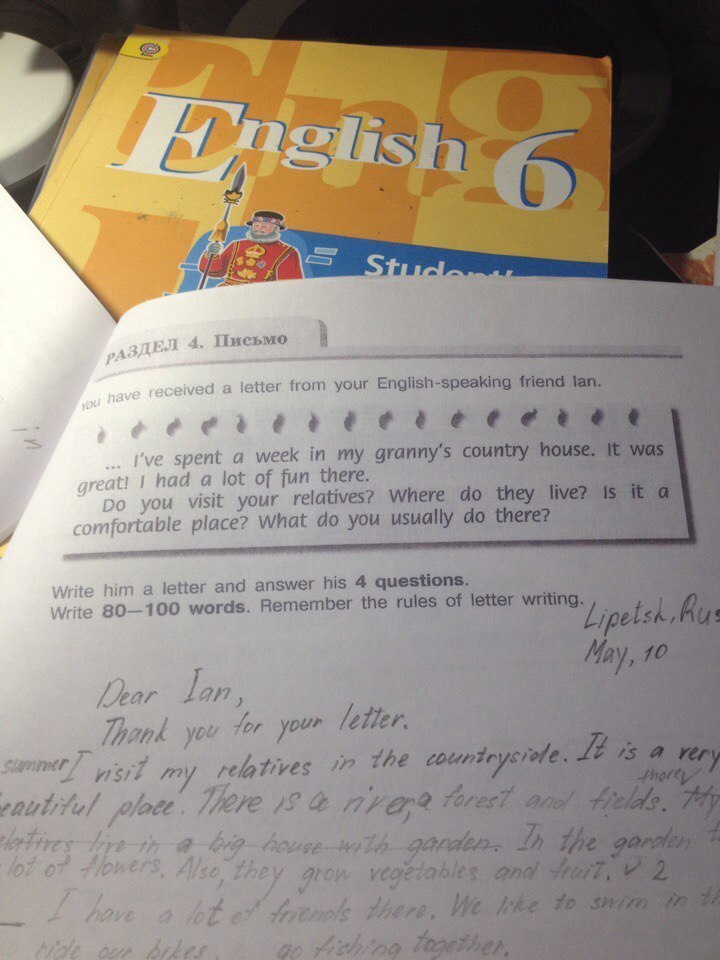 English 6
Student's
РАЗДЕЛ 4. Письмо
You have received a letter from your English-speaking friend Ian.
... I've spent a week in my granny's country house. It was
great! I had a lot of fun there.
Do you visit your relatives? Where do they live? Is it a
comfortable place? What do you usually do there?
Write him a letter and answer his 4 questions.
Write 80—100 words. Remember the rules of letter writing.
Lipetsk, Rus
May, 10
Dear Ian,
Thank you for your letter.
summer I visit my relatives in the countryside. It is a very
shore
beautiful place. There is a river, a forest and fields. My
relatives live in a big house with garden. In the garden
lot of flowers. Also, they grow vegetables and fruit. V 2
I have a lot of friends there. We like to swim in th
ride our bikes, go fishing together.